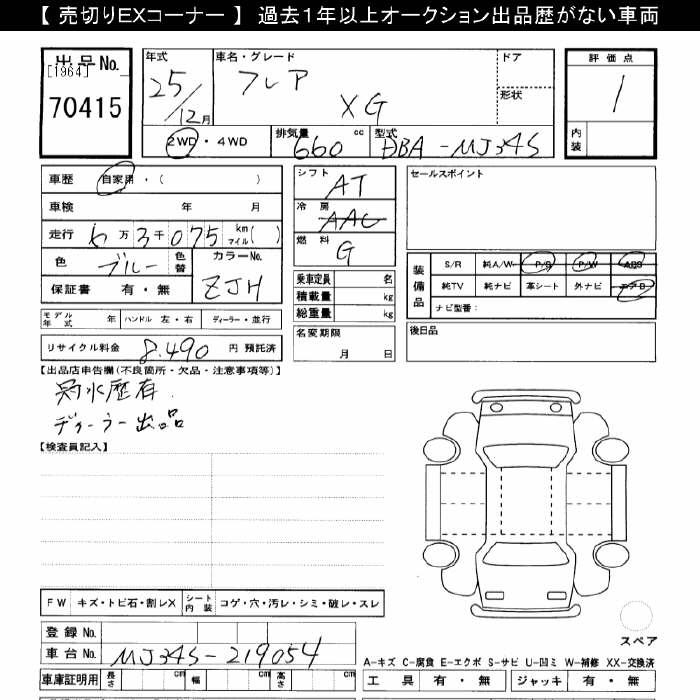 【 売切りEXコーナー 】 過去1年以上オークション出品歴がない車両
出品No. [1964] 70415
年式 25/12月
車名・グレード フレア XG
ドア
形状
評価点 1
内装
2WD・4WD
排気量 660 cc
型式 DBA-MJ34S
車歴 自家用・( )
車検 年 月
走行 6万3千075 km マイル( )
色 ブルー 色替
カラーNo. ZJH
保証書 有・無
シフト AT
冷房 AAC
燃料 G
乗車定員 名
積載量 kg
総重量 kg
セールスポイント
装備品
S/R 純A/W P/S P/W ABS
純TV 純ナビ 革シート 外ナビ エアB
ナビ型番:
モデル年式 年 ハンドル 左・右 ディーラー・並行
名変期限 月 日
後日品
リサイクル料金 8,490 円 預託済
【出品店申告欄(不良箇所・欠品・注意事項等)】
冠水歴有.
ディーラー出品
【検査員記入】
FW キズ・トビ石・割レX シート内装 コゲ・穴・汚レ・シミ・破レ・スレ
スペア
登録No.
車台No. MJ34S-219054
A-キズ C-腐食 E-エクボ S-サビ U-凹ミ W-補修 XX-交換済
車庫証明用 長さ cm 幅 cm 高さ cm
工具 有・無 ジャッキ 有・無